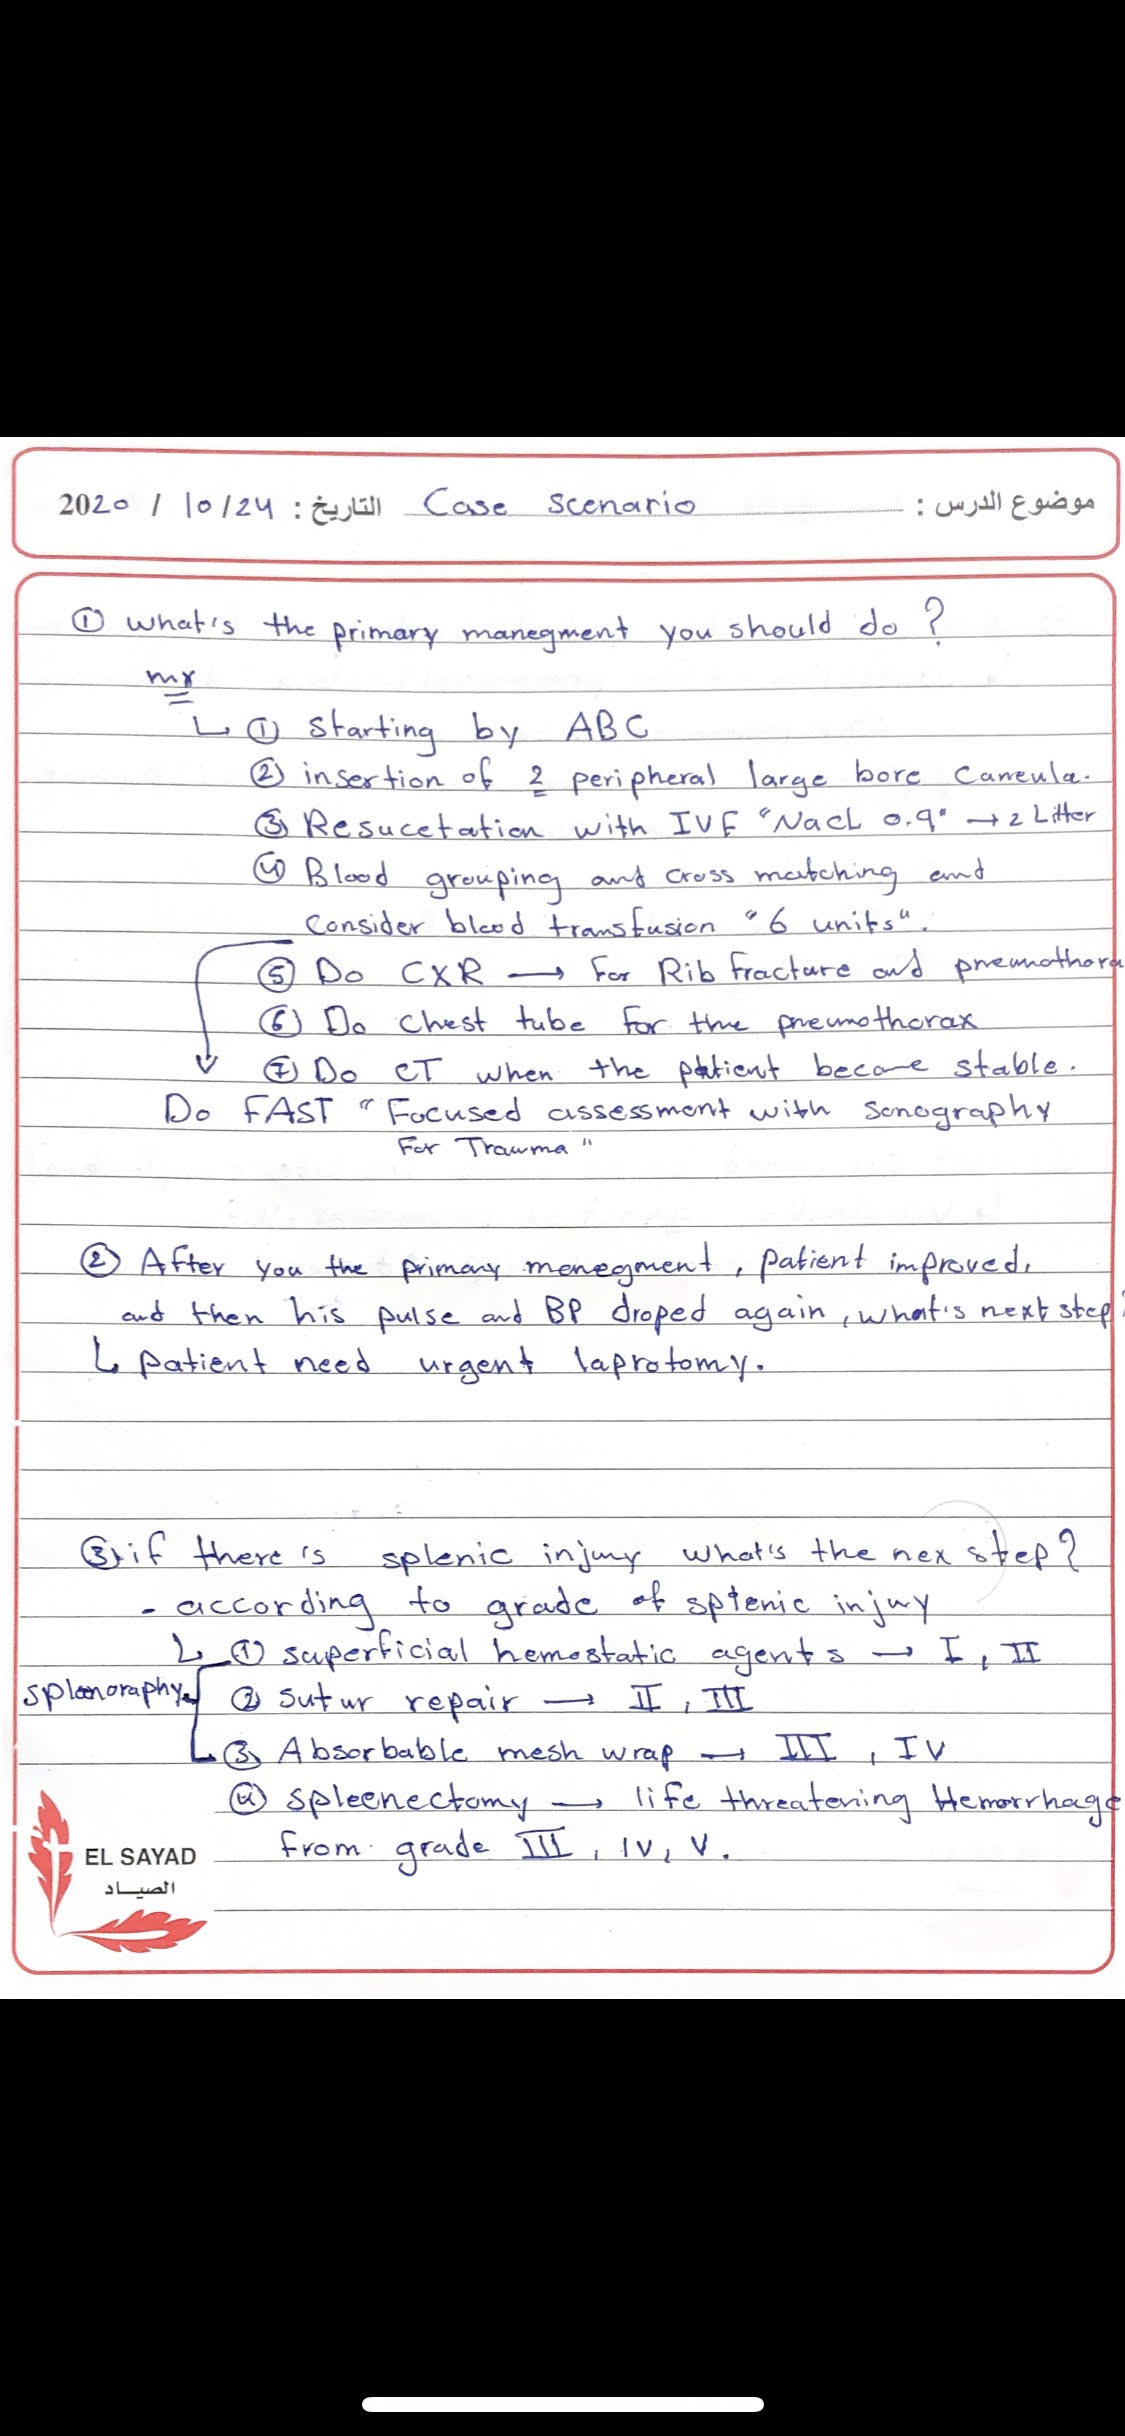 موضوع الدرس : Case scenario التاريخ : 2020 / 10/24
① what's the primary manegment you should do ?
mx
↳ ① starting by ABC
② insertion of 2 peripheral large bore caneula.
③ Resucetation with IVF "Nacl 0.9" → 2 Litter
④ Blood grouping and cross matching and
consider blood transfusion "6 units".
⑤ Do CXR → For Rib fracture and pneumothora
⑥ Do chest tube for the pneumothorax
⑦ Do CT when the patient become stable.
Do FAST "Focused assessment with Sonography
For Trauma"
② After you the primary menegment, patient improved,
and then his pulse and BP droped again, what's next step?
↳ patient need urgent laprotomy.
③ if there is splenic injury what's the nex step?
- according to grade of splenic injury
↳ ① superficial hemostatic agents → I, II
splenoraphy ② Sutur repair → II, III
③ Absorbable mesh wrap → III, IV
④ spleenectomy → life threatening Hemorrhage
from grade III, IV, V.
EL SAYAD
الصياد